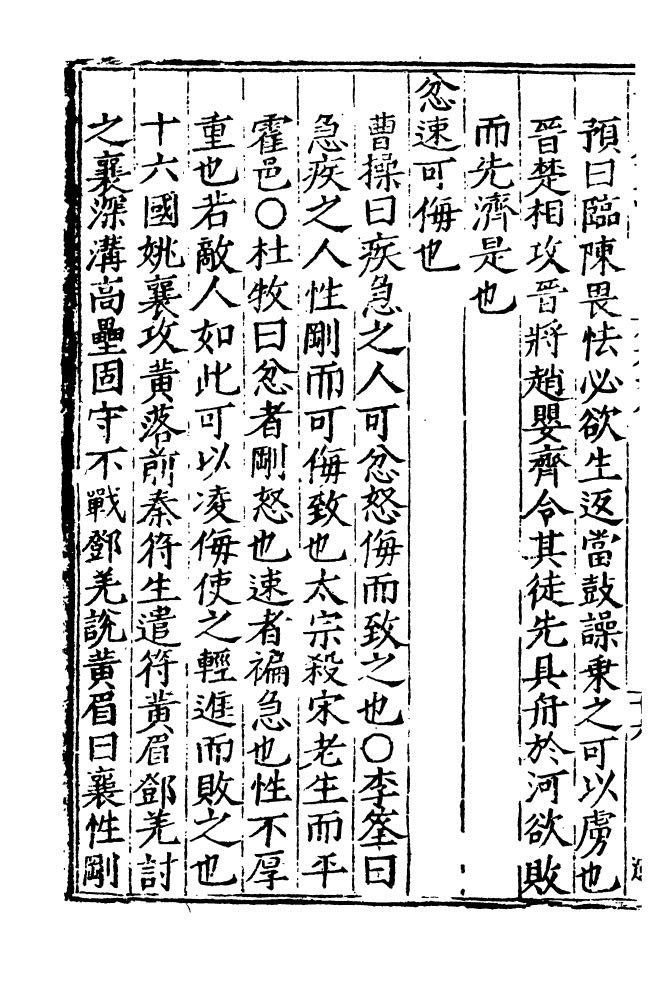 預曰臨陳畏怯必欲生返當鼓譟乗之可以虜也
晉楚相攻晉將趙嬰齊令其徒先具舟於河欲敗
而先濟是也
忿速可侮也
曹操曰疾急之人可忿怒侮而致之也○李筌曰
急疾之人性剛而可侮致也太宗殺宋老生而平
霍邑○杜牧曰忿者剛怒也速者褊急也性不厚
重也若敵人如此可以凌侮使之輕進而敗之也
十六國姚襄攻黃落前秦符生遣符黃眉鄧羌討
之襄深溝高壘固守不戰鄧羌說黃眉曰襄性剛